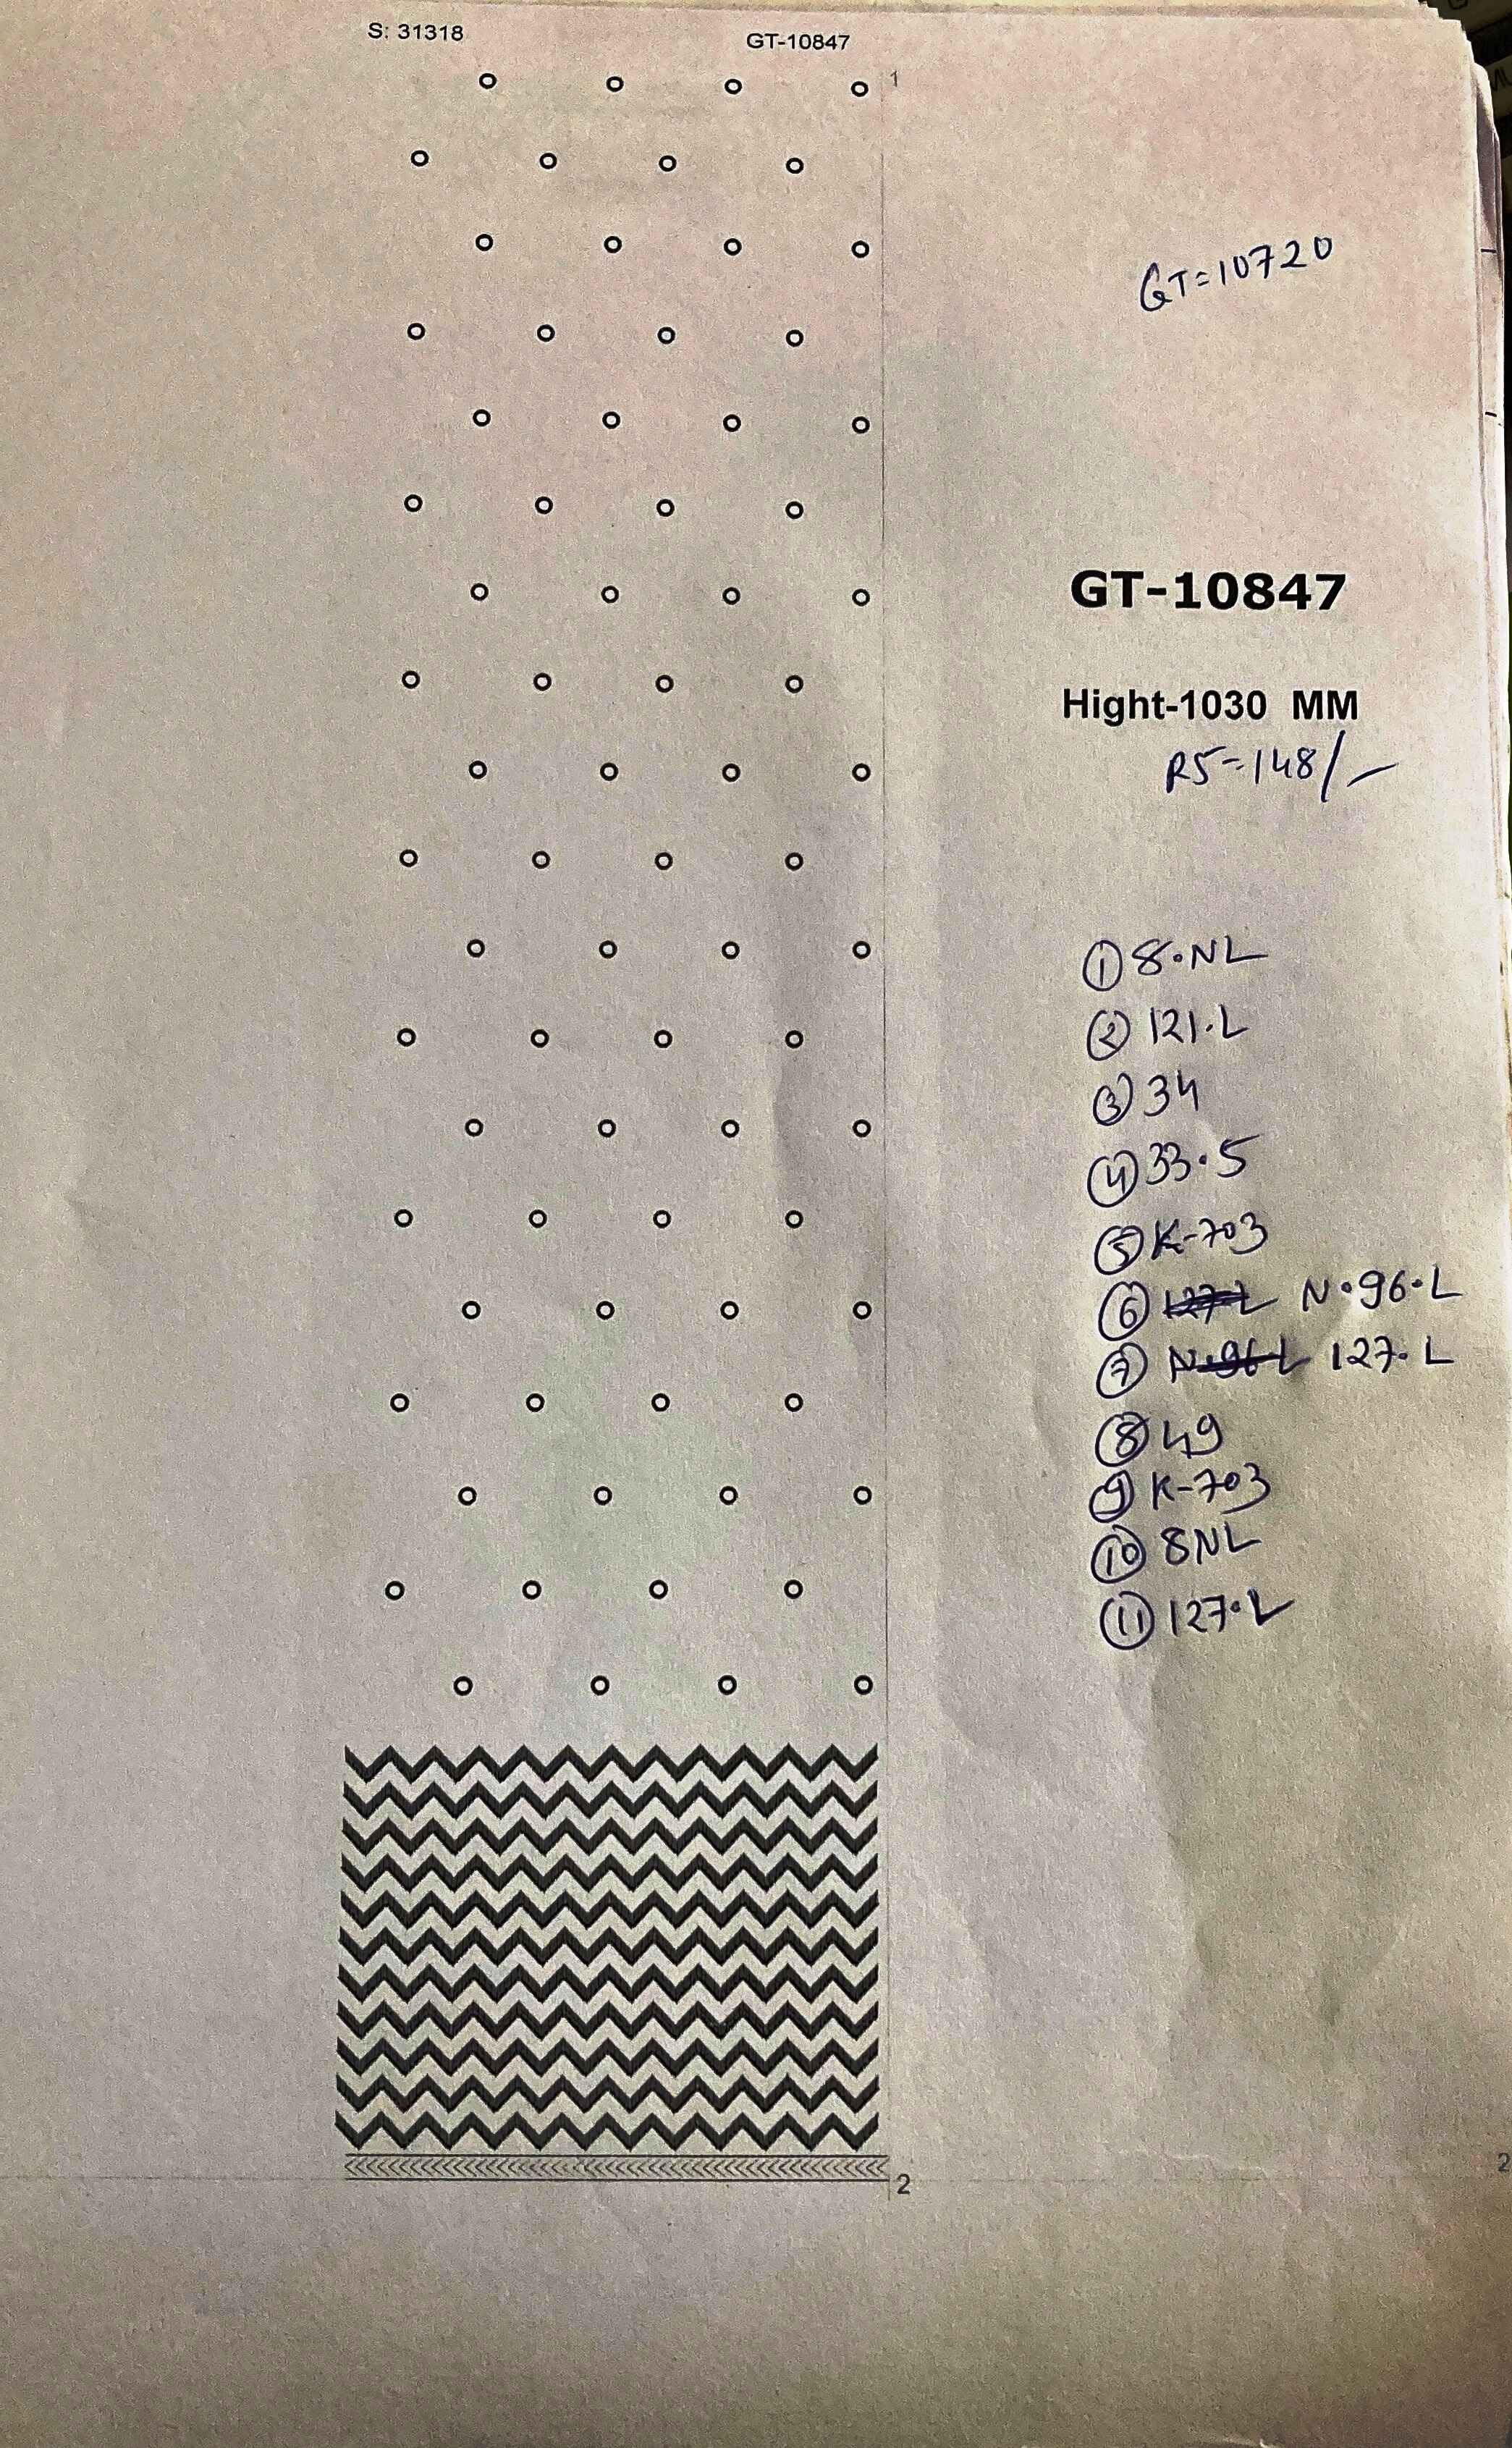 S: 31318 GT-10847
1
GT=10720
GT-10847
Hight-1030 MM
RS=148/-
① 8.NL
② 121.L
③ 34
④ 33.5
⑤ K-703
⑥ 127L N.96.L
⑦ N.96L 127.L
⑧ 49
⑨ K-703
⑩ 8NL
⑪ 127.L
2
2